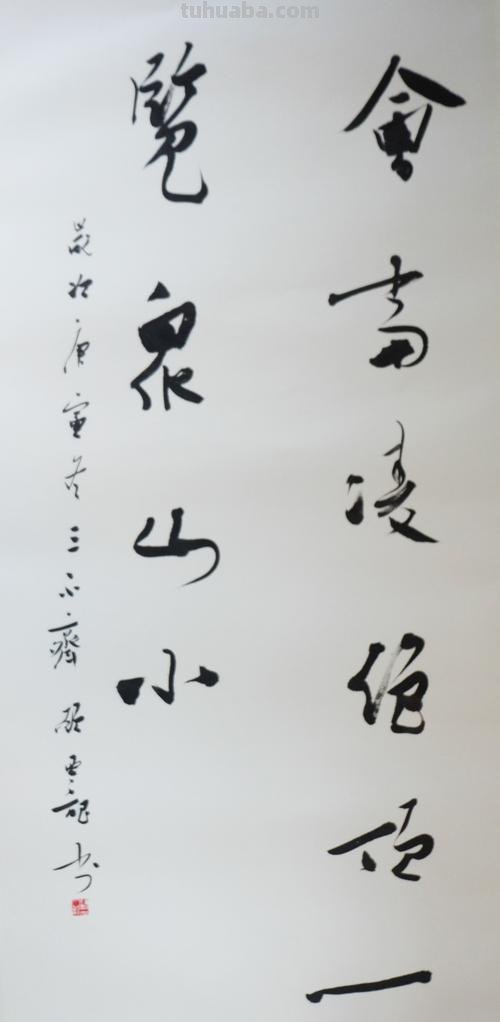 會當凌絕頂一
覽眾山小
歲次庚寅冬三不齋 雲龍书
tuhuaba.com